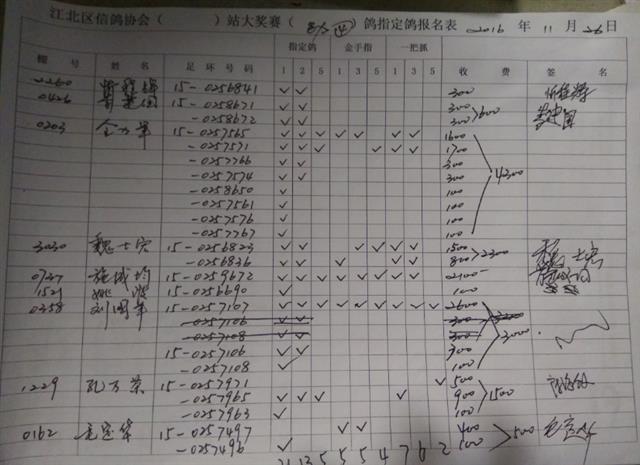 江北区信鸽协会( )站大奖赛( )鸽指定鸽报名表 2016 年 11 月 26 日
棚 号 姓 名 足 环 号 码 指定鸽 金手指 一把抓 收 费 签 名
1 2 5 1 3 5 1 3 5
2260 15-0256841 ✓ ✓ 300
0426 15-0258671 ✓ ✓ 300 >600
-0258672 ✓ ✓ 300
0203 15-0257565 ✓ ✓ ✓ ✓ ✓ ✓ ✓ 1600
-0257571 ✓ ✓ ✓ ✓ ✓ ✓ 1700
-0257766 ✓ ✓ 300
-0257574 ✓ ✓ 300 4300
-0258650 ✓ 100
-0257561 ✓ 100
-0257576 ✓ 100
-0257767 ✓ 100
3030 魏士宾 15-0256823 ✓ ✓ ✓ ✓ ✓ ✓ 1500 >2300
-0256836 ✓ ✓ ✓ ✓ ✓ 800
0727 施城均 15-0259672 ✓ ✓ ✓ ✓ ✓ ✓ ✓ ✓ 2100
1521 15-0256690 ✓ 100
0358 刘国华 15-0257107 ✓ ✓ ✓ ✓ ✓ ✓ ✓ ✓ ✓ 2600
-0257106 ✓ ✓ 300
-0257108 ✓ ✓ 300 3000
15-0257106 ✓ ✓ 300
-0257108 ✓ 100
1229 孔万荣 15-0257971 ✓ 500
-0257965 ✓ ✓ ✓ ✓ 900 1500
-0257963 ✓ 100
0162 毛定华 15-0257497 ✓ ✓ 400 >500
-0257496 ✓ 100
21 13 5 5 5 4 7 6 2